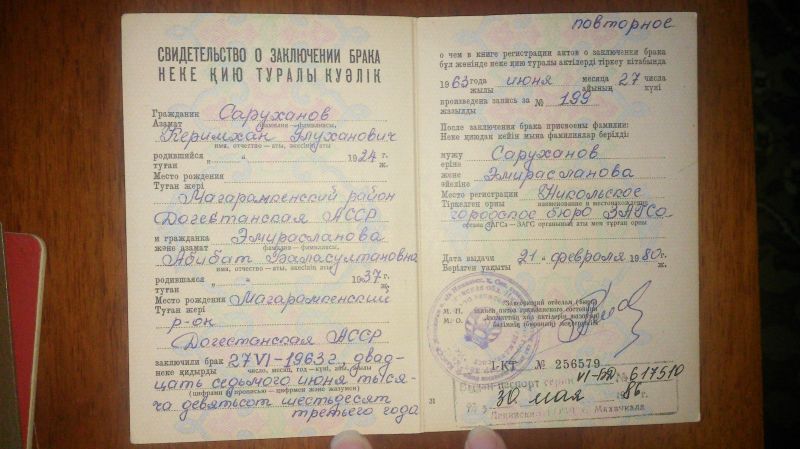 СВИДЕТЕЛЬСТВО О ЗАКЛЮЧЕНИИ БРАКА
НЕКЕ ҚИЮ ТУРАЛЫ КУӘЛІК
Гражданин Саруханов
Азамат фамилия — фамилиясы,
Керимхан Глуханович
имя, отчество — аты, әкесінің аты
родившийся 1924 г.
туған ж.
Место рождения
Туған жері
Магарамкенский район
Дагестанская АССР
и гражданка Эмирасланова
және азамат фамилия — фамилиясы,
Абибат Баласултановна
имя, отчество — аты, әкесінің аты
родившаяся 1937 г.
туған ж.
Место рождения Магарамкенский
Туған жері
р-он
Дагестанская АССР
заключили брак 27 VI-1963 г., двад-
неке қидырды число, месяц, год — күні, айы, жылы
цать седьмого июня тыся-
(цифрами и прописью — цифрмен және жазумен)
ча девятьсот шестьдесят
третьего года
повторное
о чем в книге регистрации актов о заключении брака
бұл жөнінде неке қию туралы актілерді тіркеу кітабында
1963 года июня месяца 27 числа
жылы айының күні
произведена запись за № 199
жазылды
После заключения брака присвоены фамилии:
Неке қиюдан кейін мына фамилиялар берілді:
мужу Саруханов
еріне
жене Эмирасланова
әйеліне
Место регистрации Никольское
Тіркелген орны наименование и местонахождение
городское бюро ЗАГСа
органа ЗАГСа — ЗАГС органының аты мен тұрған орны
Дата выдачи 21 " февраля 1980 г.
Берілген уақыты ж.
Заведующий отделом (бюро)
М. П. записи актов гражданского состояния
М. О.
I-КТ № 256579
31
Выдан паспорт серии VI-БД № 617510
30 мая 86
г. Махачкала